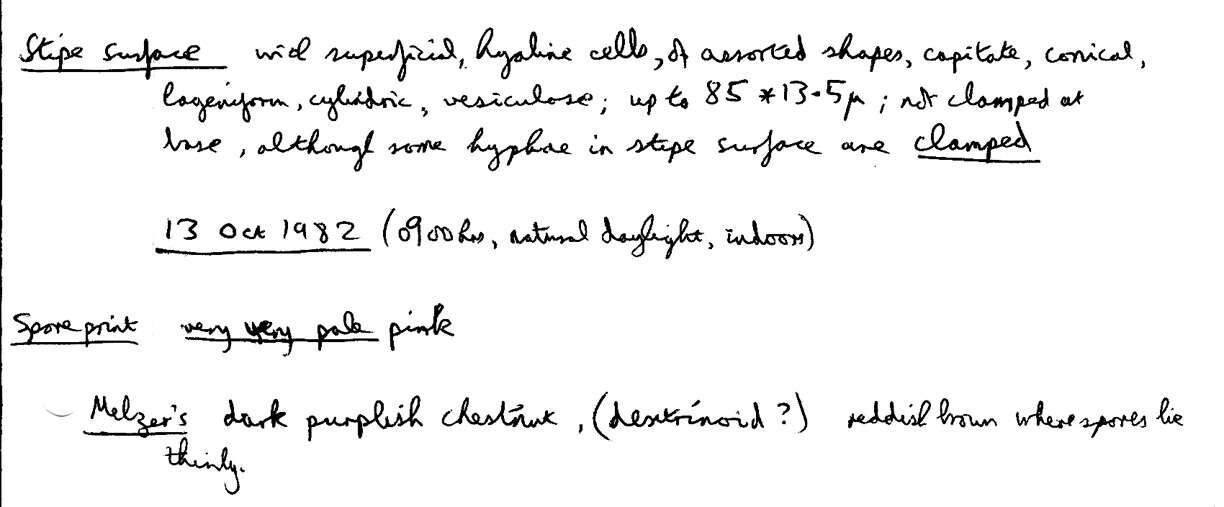 Stipe surface with superficial, hyaline cells, of assorted shapes, capitate, conical,
lageniform, cylindric, vesiculose; up to 85 * 13.5µ; not clamped at
base, although some hyphae in stipe surface are clamped
13 Oct 1982 (0900 hrs, natural daylight, indoors)
Spore print very very pale pink
Melzer's dark purplish chestnut, (dextrinoid?) reddish brown where spores lie
thinly.